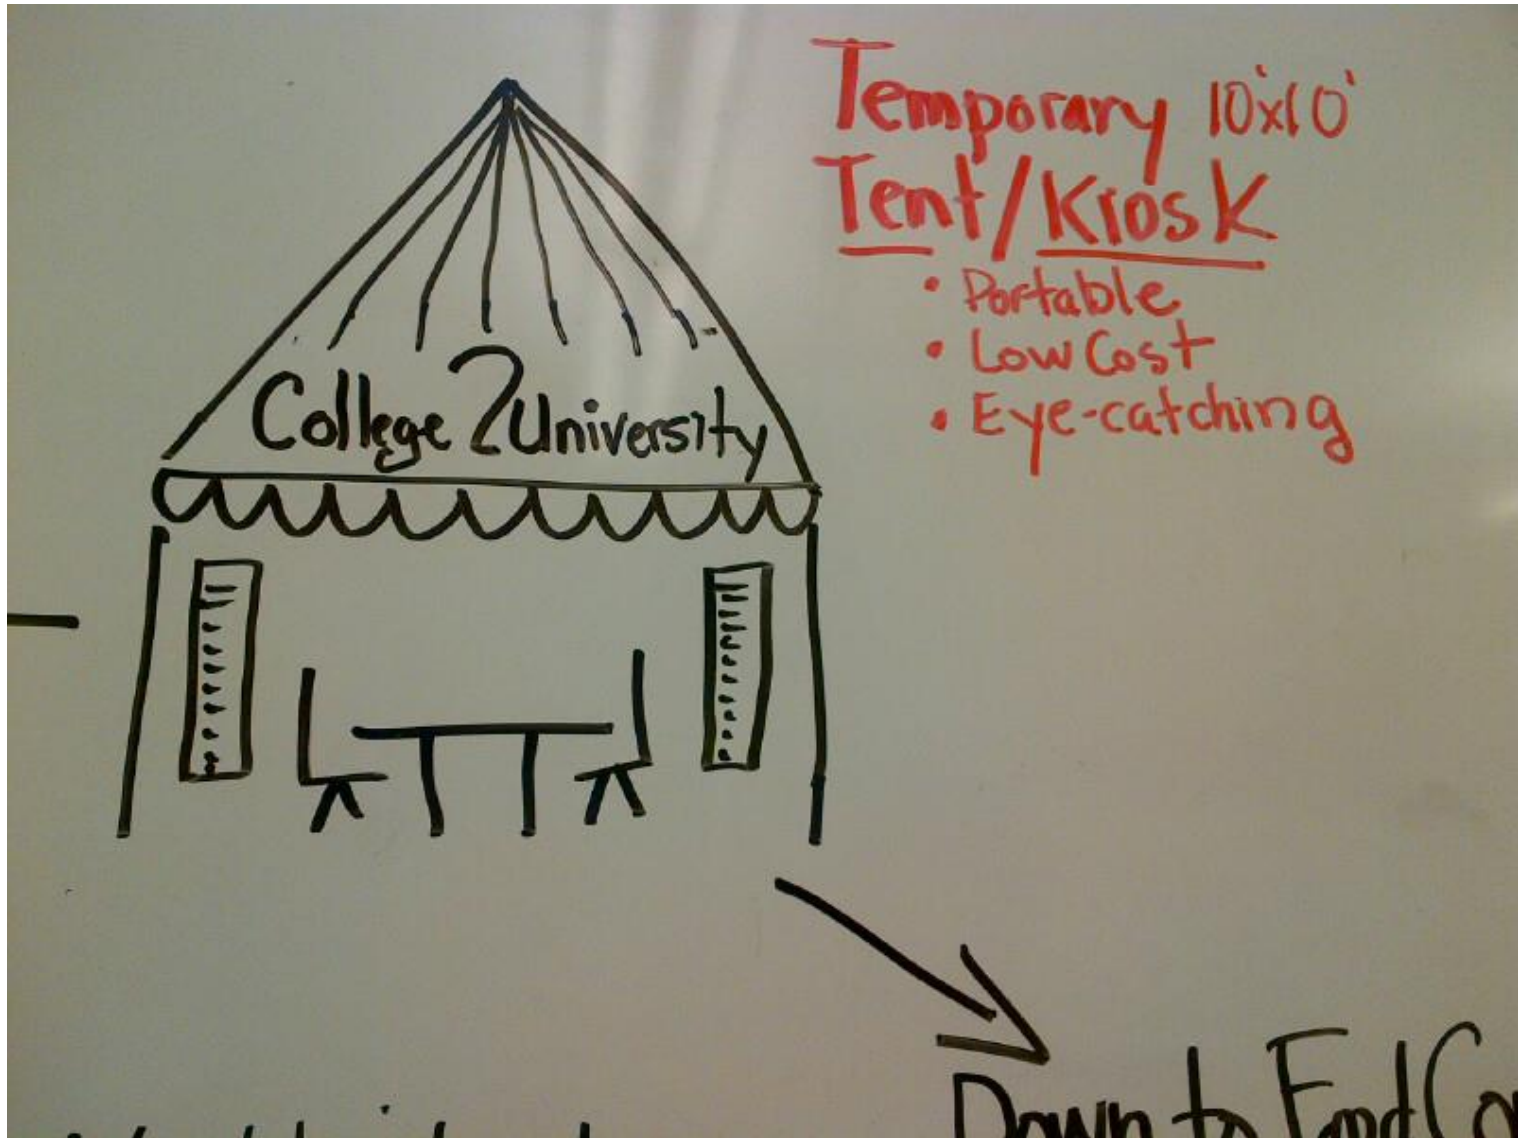 Temporary 10'x10'
Tent/Kiosk
• Portable
• Low Cost
• Eye-catching
College 2 University
Down to Food